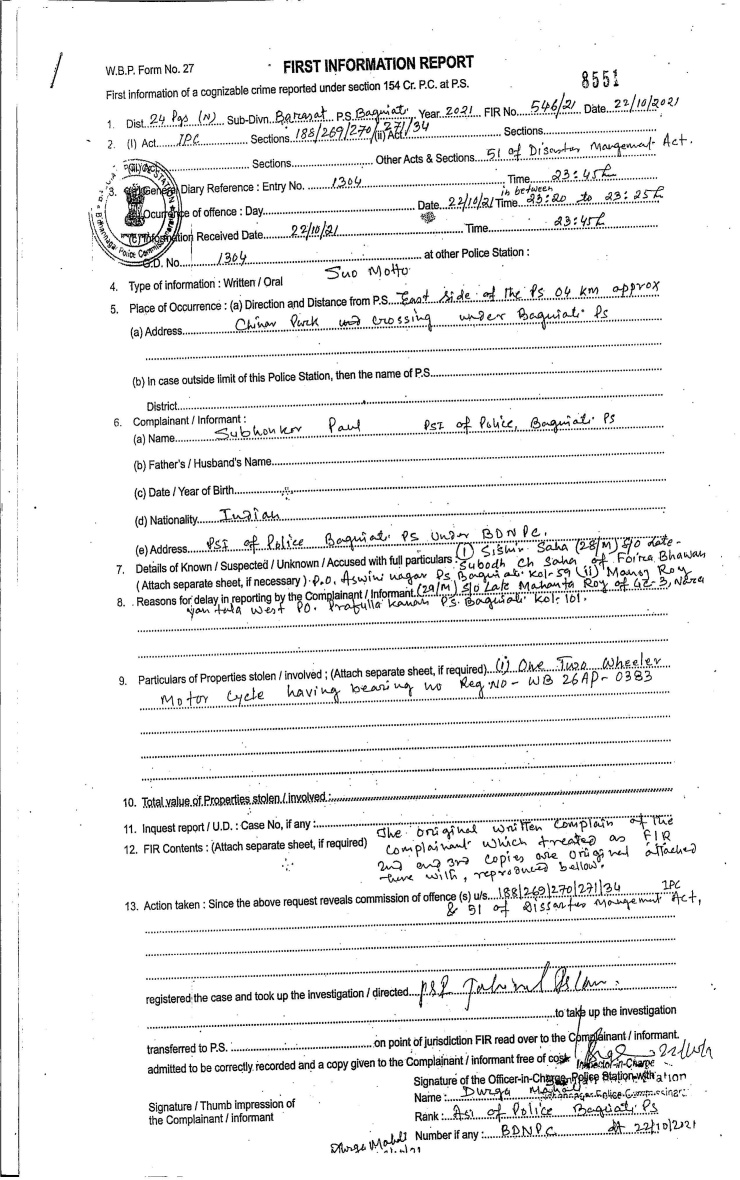 W.B.P. Form No. 27
FIRST INFORMATION REPORT
First information of a cognizable crime reported under section 154 Cr. P.C. at P.S.
8551
1. Dist. 24 Pgs (N) Sub-Divn. Barasat P.S. Baguiati Year 2021 FIR No. 546/21 Date 22/10/2021
2. (I) Act IPC Sections 188/269/270/271/34 (ii) Act Sections
Sections Other Acts & Sections 51 of Disaster Mangement Act.
3. General Diary Reference : Entry No. 1304 Time 23:45h
Occurrence of offence : Day Date 22/10/21 Time in between 23:20 to 23:25h
(c) Information Received Date 22/10/21 Time 23:45h
G.D. No. 1304 at other Police Station :
4. Type of information : Written / Oral Suo Motto
5. Place of Occurrence : (a) Direction and Distance from P.S. East side of the PS 04 km approx
(a) Address Chinar Park crossing under Baguiati Ps
(b) In case outside limit of this Police Station, then the name of P.S.
District
6. Complainant / Informant :
(a) Name Subhonkor Paul PSI of Police, Baguiati Ps
(b) Father's / Husband's Name
(c) Date / Year of Birth
(d) Nationality Indian
(e) Address PSI of Police Baguiati PS Under BDNPC.
7. Details of Known / Suspected / Unknown / Accused with full particulars : (i) Sishir Saha (28/M) S/o Late-
Subodh Ch Saha of Foirea Bhawan
(Attach separate sheet, if necessary) P.O. Aswini nagar Ps Baguiati Kol-59 (ii) Manoj Roy
8. Reasons for delay in reporting by the Complainant / Informant (29/M) S/o Late Mahanta Roy of GZ-3, Nara
yan tala West PO. Prafulla Kanan PS. Baguiati Kol-101.
9. Particulars of Properties stolen / involved ; (Attach separate sheet, if required) (i) One Two Wheeler
Motor Cycle having bearing no Reg. No - WB 26AP- 0383
10. Total value of Properties stolen / involved :
11. Inquest report / U.D. : Case No, if any :
12. FIR Contents : (Attach separate sheet, if required) The original written Complain of the
Complainant which treated as FIR
2nd and 3rd Copies are original attached
here with, reproduced bellow.
13. Action taken : Since the above request reveals commission of offence (s) u/s. 188/269/270/271/34 IPC
& 51 of Dissarter Mangement Act,
registered the case and took up the investigation / directed PSI
to take up the investigation
transferred to P.S. on point of jurisdiction FIR read over to the Complainant / informant.
admitted to be correctly recorded and a copy given to the Complainant / informant free of cost
Inspector-in-Charge
Signature of the Officer-in-Charge, Police Station with
Signature / Thumb impression of
the Complainant / informant
Name : Durga Mahali
Rank : Asi of Police Baguiati Ps
Number if any : BDNPC dt 22/10/2021
Durga Mahali